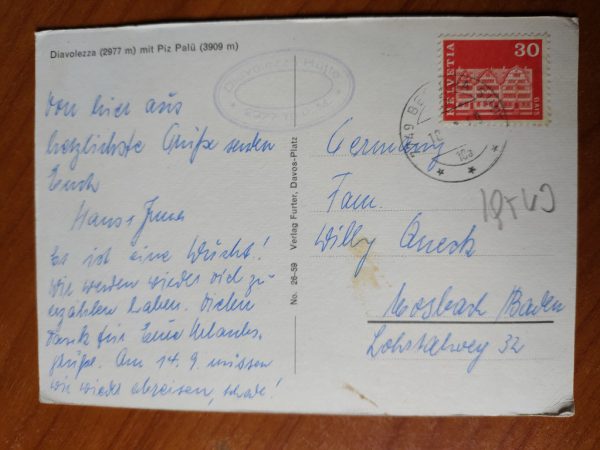 Diavolezza (2977 m) mit Piz Palü (3909 m)
Von hier aus
herzlichste Grüße senden
Euch
Hans + Irma
Es ist eine Wucht!
Wir werden wieder viel zu
erzählen haben. Vielen
Dank für Eure Urlaubs-
grüße. Am 14. 9. müssen
wir wieder abreisen, schade!
No. 26-59 Verlag Furter, Davos-Platz
HELVETIA
30
GAIS
Germany
Fam.
Willy
Mosbach / Baden
32